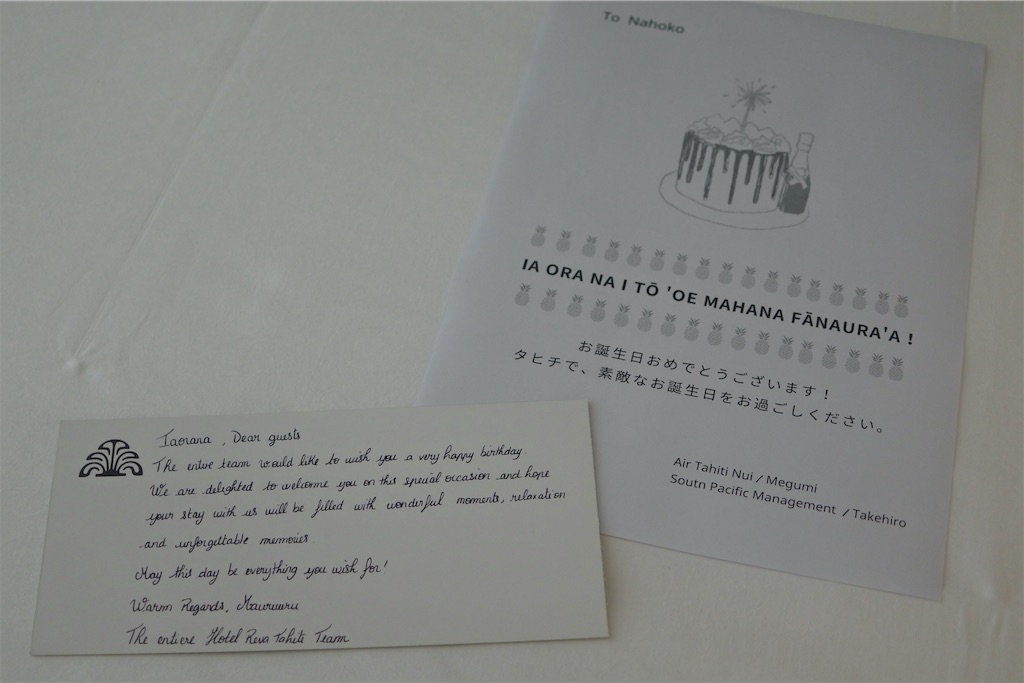 To Nahoko
IA ORA NA I TŌ 'OE MAHANA FĀNAURA'A !
お誕生日おめでとうございます！
タヒチで、素敵なお誕生日をお過ごしください。
Air Tahiti Nui／Megumi
Soutn Pacific Management ／Takehiro
Iaorana, Dear guests
The entire team would like to wish you a very happy birthday.
We are delighted to welcome you on this special occasion and hope
your stay with us will be filled with wonderful moments, relaxation
and unforgettable memories
May this day be everything you wish for!
Warm Regards, Mauruuru
The entiere Hotel Reva Tahiti Team